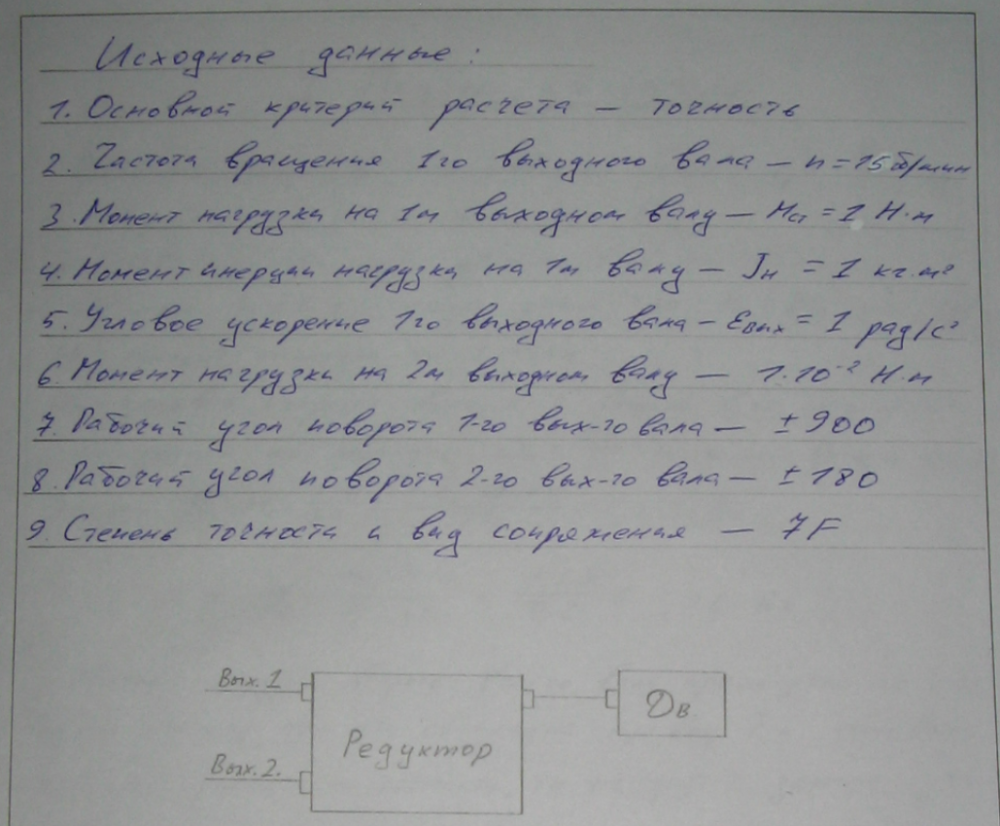 Исходные данные:
1. Основной критерий расчета — точность
2. Частота вращения 1го выходного вала — n = 15 об/мин
3. Момент нагрузки на 1м выходном валу — Mст = 1 Н·м
4. Момент инерции нагрузки на 1м валу — Jн = 1 кг·м²
5. Угловое ускорение 1го выходного вала — εвых = 1 рад/с²
6. Момент нагрузки на 2м выходном валу — 1·10⁻² Н·м
7. Рабочий угол поворота 1-го вых-го вала — ±900
8. Рабочий угол поворота 2-го вых-го вала — ±180
9. Степень точности и вид сопряжения — 7F
Вых. 1
Дв
Редуктор
Вых. 2.